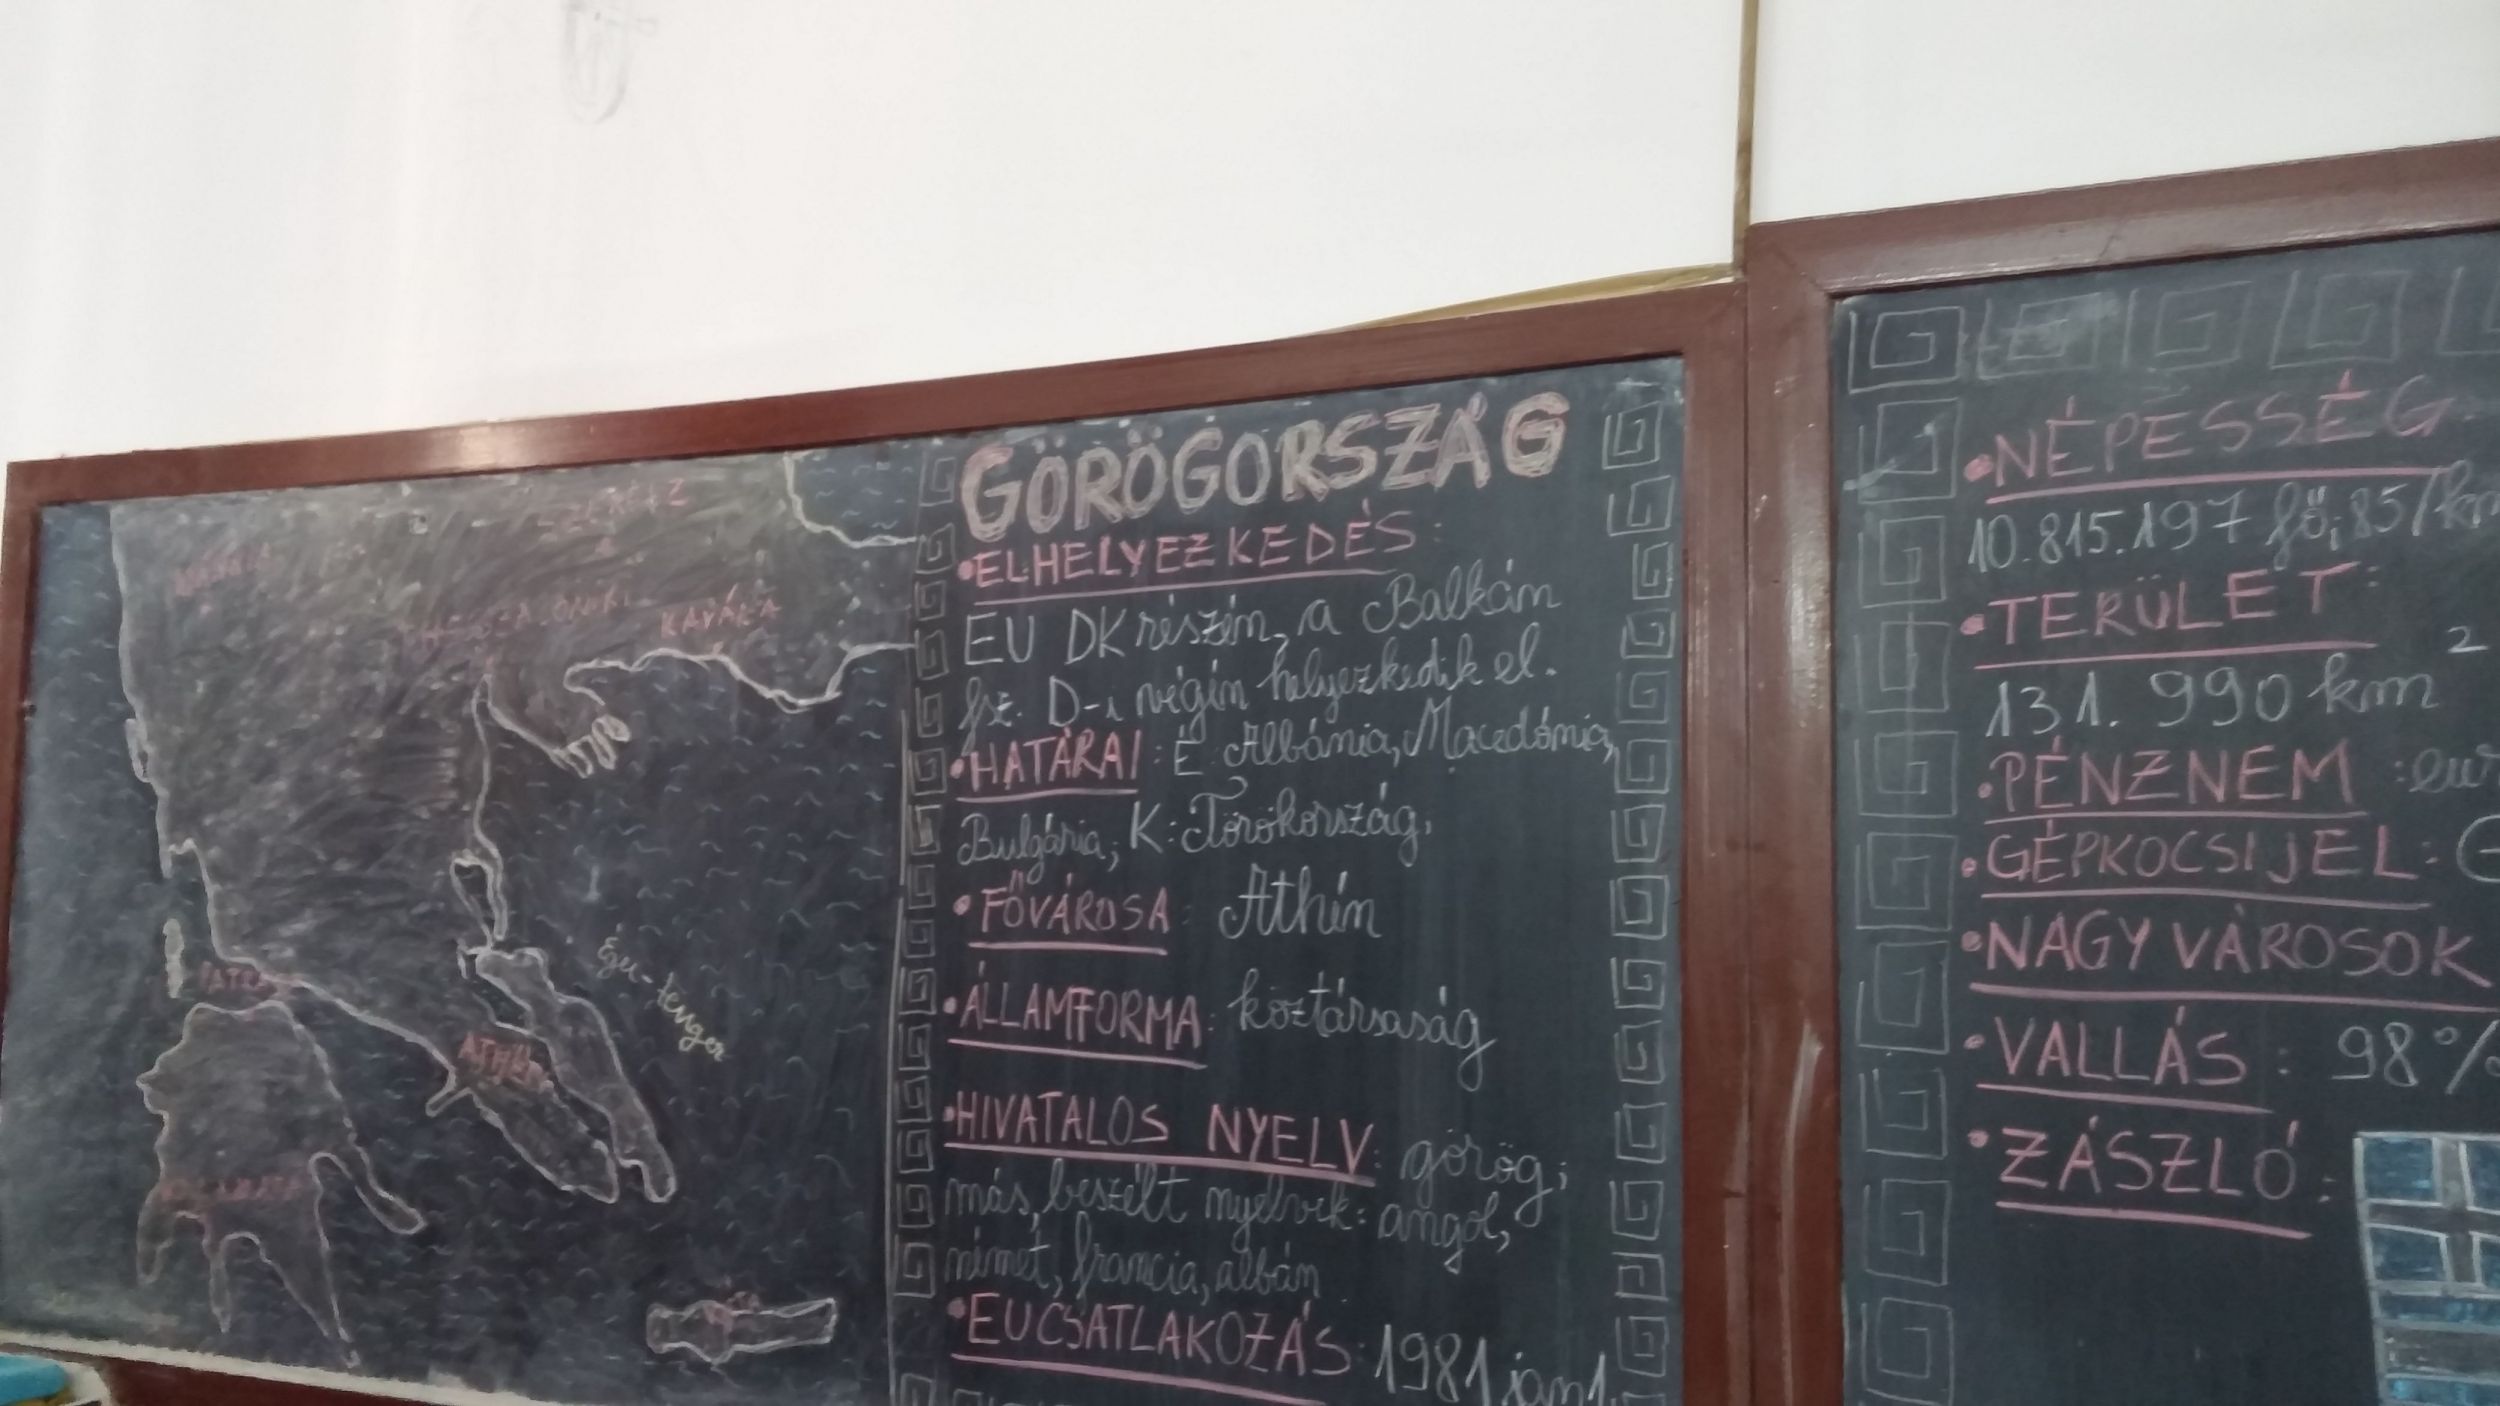 SZERESZ
THESSZALONIKI
KAVÁLA
PATRA
ATHÉN
Égei-tenger
KALAMATA
KRÉTA
GÖRÖGORSZÁG
•ELHELYEZKEDÉS:
EU DK részén, a Balkán
fsz. D-i végén helyezkedik el.
•HATÁRAI: É: Albánia, Macedónia,
Bulgária, K: Törökország,
•FŐVÁROSA: Athén
•ÁLLAMFORMA: köztársaság
•HIVATALOS NYELV: görög;
más, beszélt nyelvek: angol,
német, francia, albán
•EU CSATLAKOZÁS: 1981 jan 1.
•NÉPESSÉG
10.815.197 fő; 85/km
•TERÜLET:
131.990 km²
•PÉNZNEM: eur
•GÉPKOCSIJEL: G
•NAGYVÁROSOK
•VALLÁS: 98%
•ZÁSZLÓ: